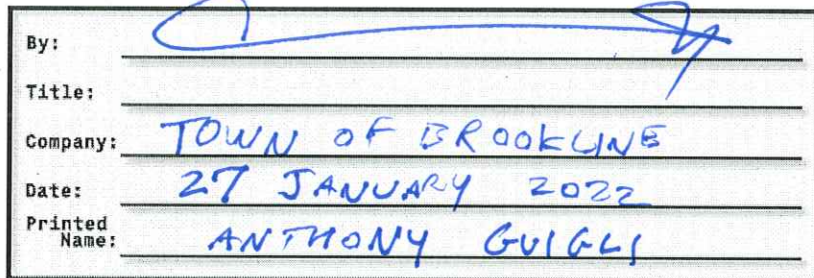 By:
Title:
Company: TOWN OF BROOKLINE
Date: 27 JANUARY 2022
Printed
Name: ANTHONY GUIGLI